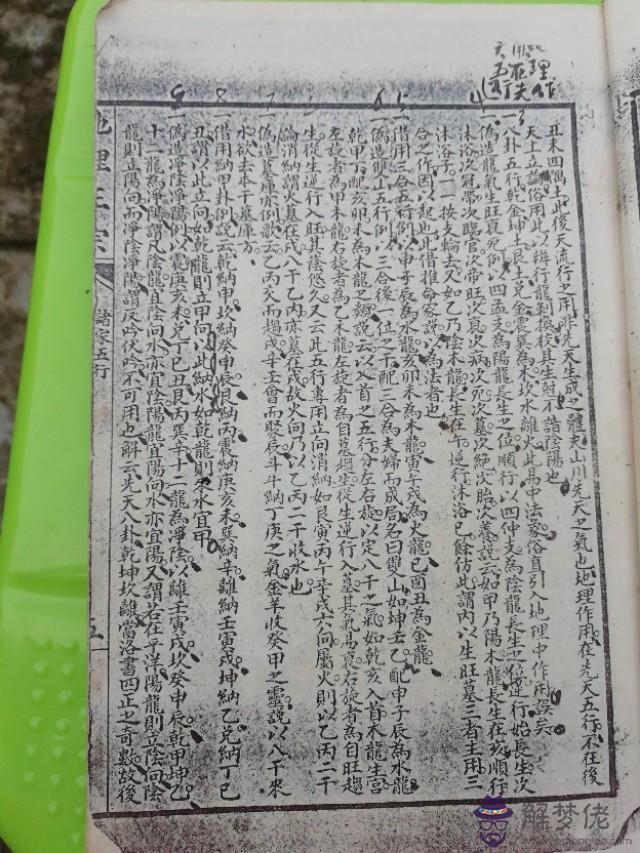 丑未四偶土此後天流行之用非先天生成之體夫山川先天之氣也地理作用在先天五行不在後
天上立論俗用此以辨行龍剝換校其生尅不諳陰陽也
一八卦五行乾金坤土艮土兑金震巽為木坎水離火此易中法家俗直引入地理中作用誤矣
一偽造龍氣生旺衰死例以四孟支為陽龍長生之位順行以四仲支為陰龍長生之位逆行始長生次
沐浴次冠帶次臨官次帝旺次衰次病次死次墓次絶次胎次養說云如甲乃陽木龍長生在亥順行
沐浴于一按支輪去又如乙乃陰木龍長生在午逆行沐浴巳餘仿此謂内以生旺墓三者主用三
合之作因以起也此借推命家說以為法者也
一借用三合五行例以申子辰為水龍亥卯未為木龍寅午戌為火龍巳酉丑為金龍
一偽造雙山五行例以三合後一位之干配三合為夫婦而成局名曰雙山如坤壬乙配申子辰為水龍
乾甲丁配亥卯未為木龍之類說云以入首之五行分左右旋以定八干之氣如乾亥入首木龍生宫
左旋者為甲木龍右旋者為乙木龍左旋者為自墓趨生從生逆行入墓其氣易衰右旋者為自旺趨
生從生逆行入旺其蔭悠久又云此五行專用立向消納如艮寅丙午辛戌六向屬火則以乙丙二干
論消納謂火墓在戌八干乙丙亦墓在戌故火向乃以乙丙二干收水也
一偽造墓庫亦例歌云乙丙交而趨戌辛壬會而聚辰斗牛納丁庚之氣金羊收癸甲之靈說以八干來
水欲去本干墓庫方
一借用納甲卦例說云乾納甲坎納癸申辰艮納丙震納庚亥未巽納辛離納壬寅戌坤納乙兑納丁巳
丑謂以此立向如乾龍則立甲向以此納水如乾龍則受水宜甲
一偽造净陰净陽例以震庚亥未兑丁巳丑艮丙巽辛十二龍為净陰以離壬寅戌坎癸申辰乾甲坤乙
十二龍為净陽謂凡陰龍宜陰向水亦宜陰陽龍宜陽向水亦宜陽又謂若在平洋陽龍則立陰向陰
龍則立陽向而净陰净陽謂反吟伏吟不可用也解云先天八卦乾坤坎離當洛書四正之奇數故後
諸家五行
五
解梦佬